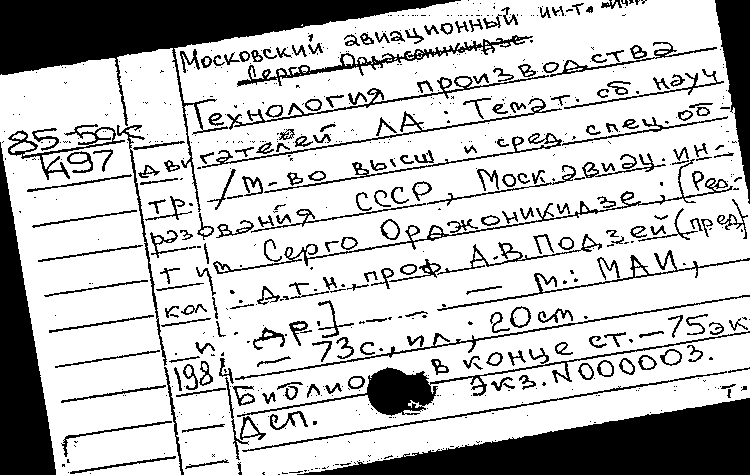 Московский авиационный ин-т.
Серго Орджоникидзе.
85-50к
К197
Технология производства
двигателей ЛА : Темат. сб. науч
тр. / М-во высш. и сред. спец. об-
разования СССР, Моск. авиац. ин-
т им. Серго Орджоникидзе ; (Ред.-
кол. : д.т.н., проф. А.В. Подзей (пред)
и др.] — . — М.: МАИ.,
1984 — 73 с., ил. ; 20 cm.
Библио в конце ст. — 75 эк
Экз. N000003.
Деп.
т.